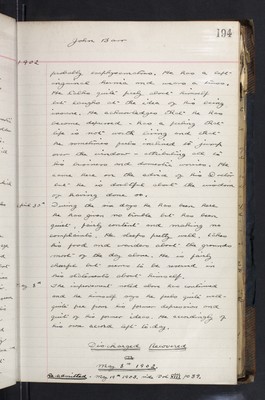 John Baur
194
1902
probably emphysematous. He has a left
inguinal hernia and wears a truss.
He talks quite freely about himself
but laughs at the idea of his being
insane. He acknowledges that he has
become depressed - has a feeling that
life is not worth living and that
he sometimes feels inclined to jump
over the window - attributing it to
his business and domestic worries. He
came here on the advice of his Doctor
but he is doubtful about the wisdom
of having done so.
During the six days he has been here
he has given no trouble but has been
quiet, fairly content and making no
complaints. He sleeps fairly well, likes
his food and wanders about the grounds
most of the day alone. He is fairly
cheerful but seems to be unreal in
his statements about himself.
May 8th
The improvement noted above has continued
and he himself says he feels quite well -
quite free from his former depression and
quit of his former ideas. He accordingly of
his own accord left to-day.
Discharged Recovered
on
May 8th 1902
Re-admitted - May 12th 1903. vide Vol XIII p. 933.